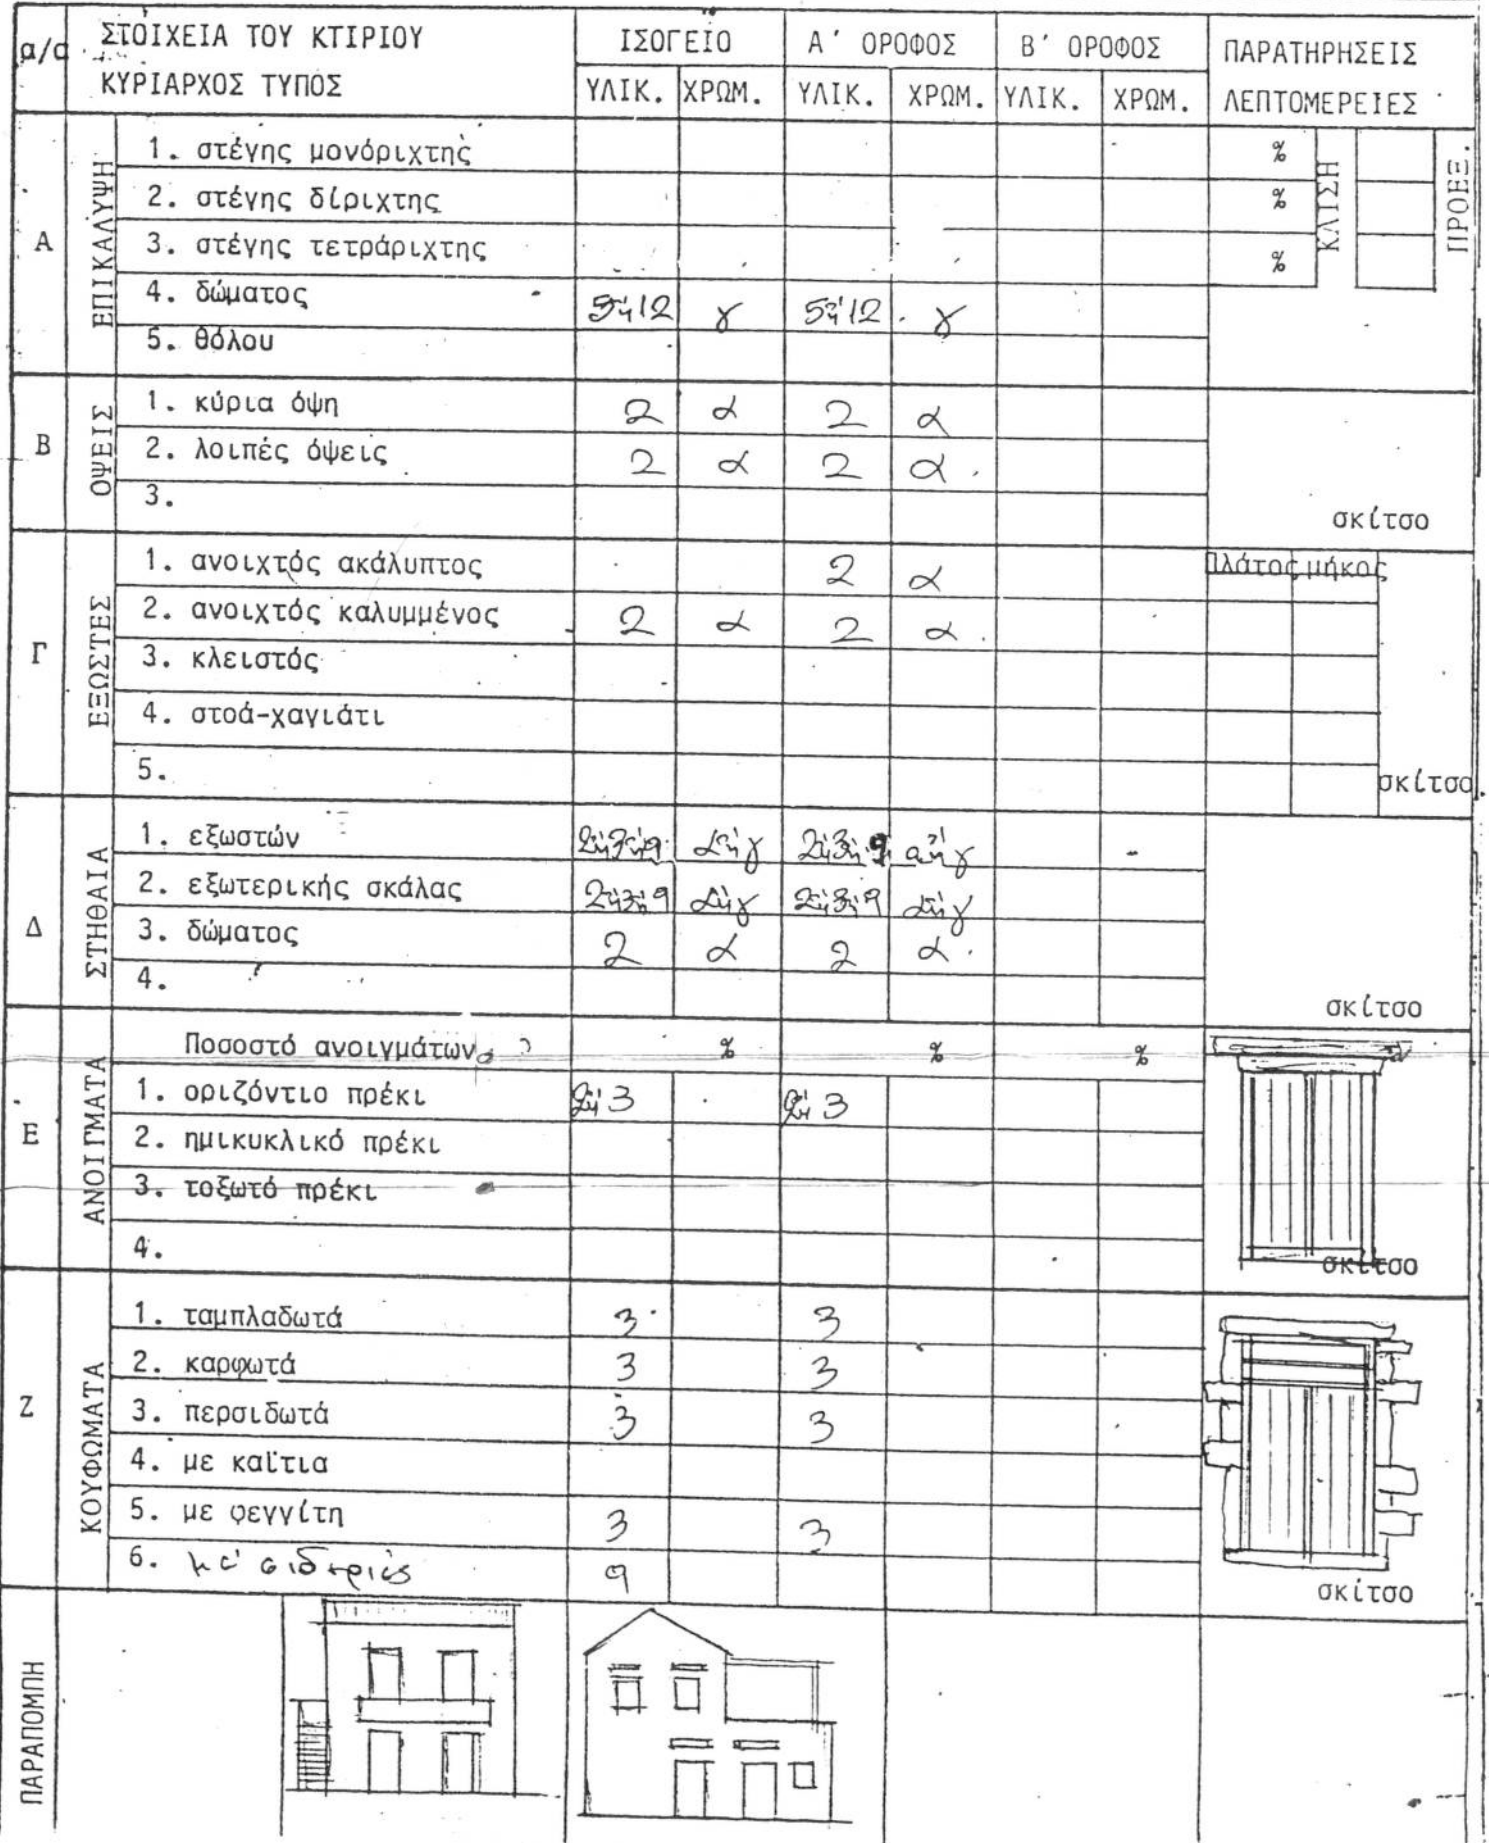 α/α ΣΤΟΙΧΕΙΑ ΤΟΥ ΚΤΙΡΙΟΥ ΙΣΟΓΕΙΟ Α΄ ΟΡΟΦΟΣ Β΄ ΟΡΟΦΟΣ ΠΑΡΑΤΗΡΗΣΕΙΣ
ΚΥΡΙΑΡΧΟΣ ΤΥΠΟΣ ΥΛΙΚ. ΧΡΩΜ. ΥΛΙΚ. ΧΡΩΜ. ΥΛΙΚ. ΧΡΩΜ. ΛΕΠΤΟΜΕΡΕΙΕΣ
Α ΕΠΙΚΑΛΥΨΗ
1. στέγης μονόριχτης %
2. στέγης δίριχτης %
3. στέγης τετράριχτης %
ΚΛΙΣΗ ΠΡΟΕΞ.
4. δώματος 5ή12 γ 5ή12 γ
5. θόλου
Β ΟΨΕΙΣ
1. κύρια όψη 2 α 2 α
2. λοιπές όψεις 2 α 2 α
3. σκίτσο
Γ ΕΞΩΣΤΕΣ
1. ανοιχτός ακάλυπτος 2 α Πλάτος μήκος
2. ανοιχτός καλυμμένος 2 α 2 α
3. κλειστός
4. στοά-χαγιάτι
5. σκίτσο
Δ ΣΤΗΘΑΙΑ
1. εξωστών 2ή3ή9 αήγ 2ή3ή9 αήγ
2. εξωτερικής σκάλας 2ή3ή9 αήγ 2ή3ή9 αήγ
3. δώματος 2 α 2 α
4. σκίτσο
Ε ΑΝΟΙΓΜΑΤΑ
Ποσοστό ανοιγμάτων % % %
1. οριζόντιο πρέκι 2ή3 2ή3
2. ημικυκλικό πρέκι
3. τοξωτό πρέκι
4. σκίτσο
Ζ ΚΟΥΦΩΜΑΤΑ
1. ταμπλαδωτά 3 3
2. καρφωτά 3 3
3. περσιδωτά 3 3
4. με καΐτια
5. με φεγγίτη 3 3
6. με σιδεριές 9
σκίτσο
ΠΑΡΑΠΟΜΠΗ